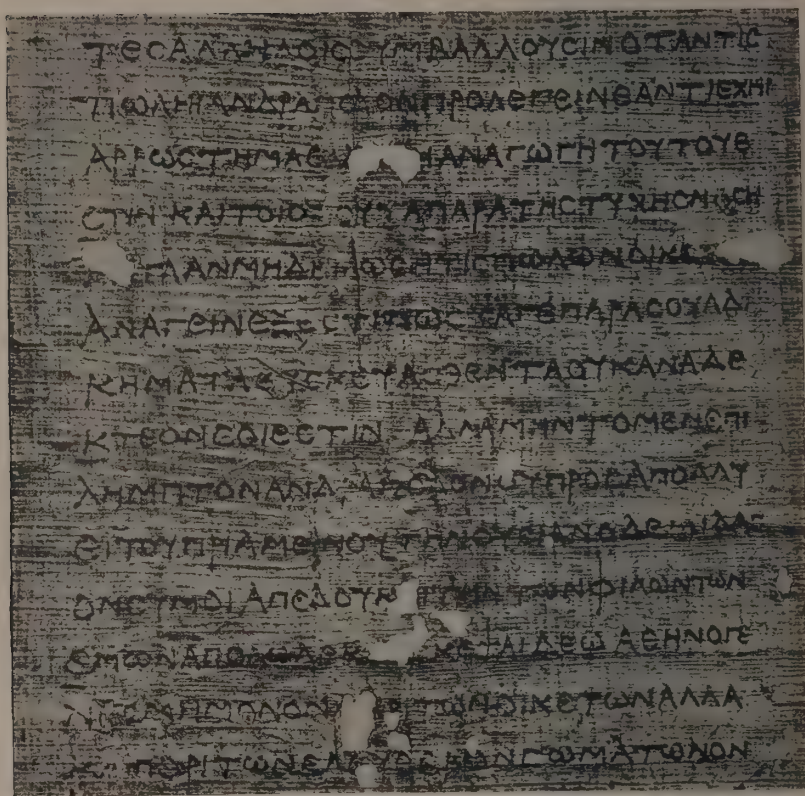 ΤΕСΑΛΛΗΛΟΙС ΥΜΒΑΛΛΟΥСΙΝΟΤΑΝΤΙС
ΠΩΛΗΙΑΝΔΡΑΠΟΔΟΝΠΡΟΛΕΓΕΙΝΕΑΝΤΙΕΧΗΙ
ΑΡΡΩСΤΗΜΑΕ ΗΑΝΑΓΩΓΗΤΟΥΤΟΥΕ
СΤΙΝ ΚΑΙΤΟΙΟΠΟΥΤΑΠΑΡΑΤΗСΤΥΧΗСΝΟСΗ
ΑΝΜΗΔΗΛΩСΗΤΙСΠΩΛΩΝΟΙΚΕ
ΑΝΑΓΕΙΝΕΞΕСΤΙΠΩСΤΑΓΕΠΑΡΑСΟΥΑΔΙ
ΚΗΜΑΤΑСΥСΚΕΥΑСΘΕΝΤΑΟΥΚΑΝΑΔΕ
ΚΤΕΟΝСΟΙΕСΤΙΝ ΑΛΛΑΜΗΝΤΟΜΕΝΕΠΙ
ΛΗΜΠΤΟΝΑΝΔΡΑΠΟΔΟΝΟΥΠΡΟСΑΠΟΛΛΥ
ΕΙΤΟΥΠΡΙΑΜΕΝΟΥΤΗΝΟΥСΙΑΝΟΔΕΜΙΔΑС
ΟΝСΥΜΟΙΑΠΕΔΟΥΚ ΤΗΝ ΤΩΝΦΙΛΩΝΤΩΝ
ΕΜΩΝΑΠΟΛΩΛΕΚΕ ΚΕΨΑΙΔΕΩΑΘΗΝΟΓΕ
ΝΕСΜΗΜΟΝΟΝ ΕΡΙΤΩΝΟΙΚΕΤΩΝΑΛΛΑ
Κ ΠΕΡΙΤΩΝΕΛΕΥΘΕΡΩΝСΩΜΑΤΩΝΟΝ